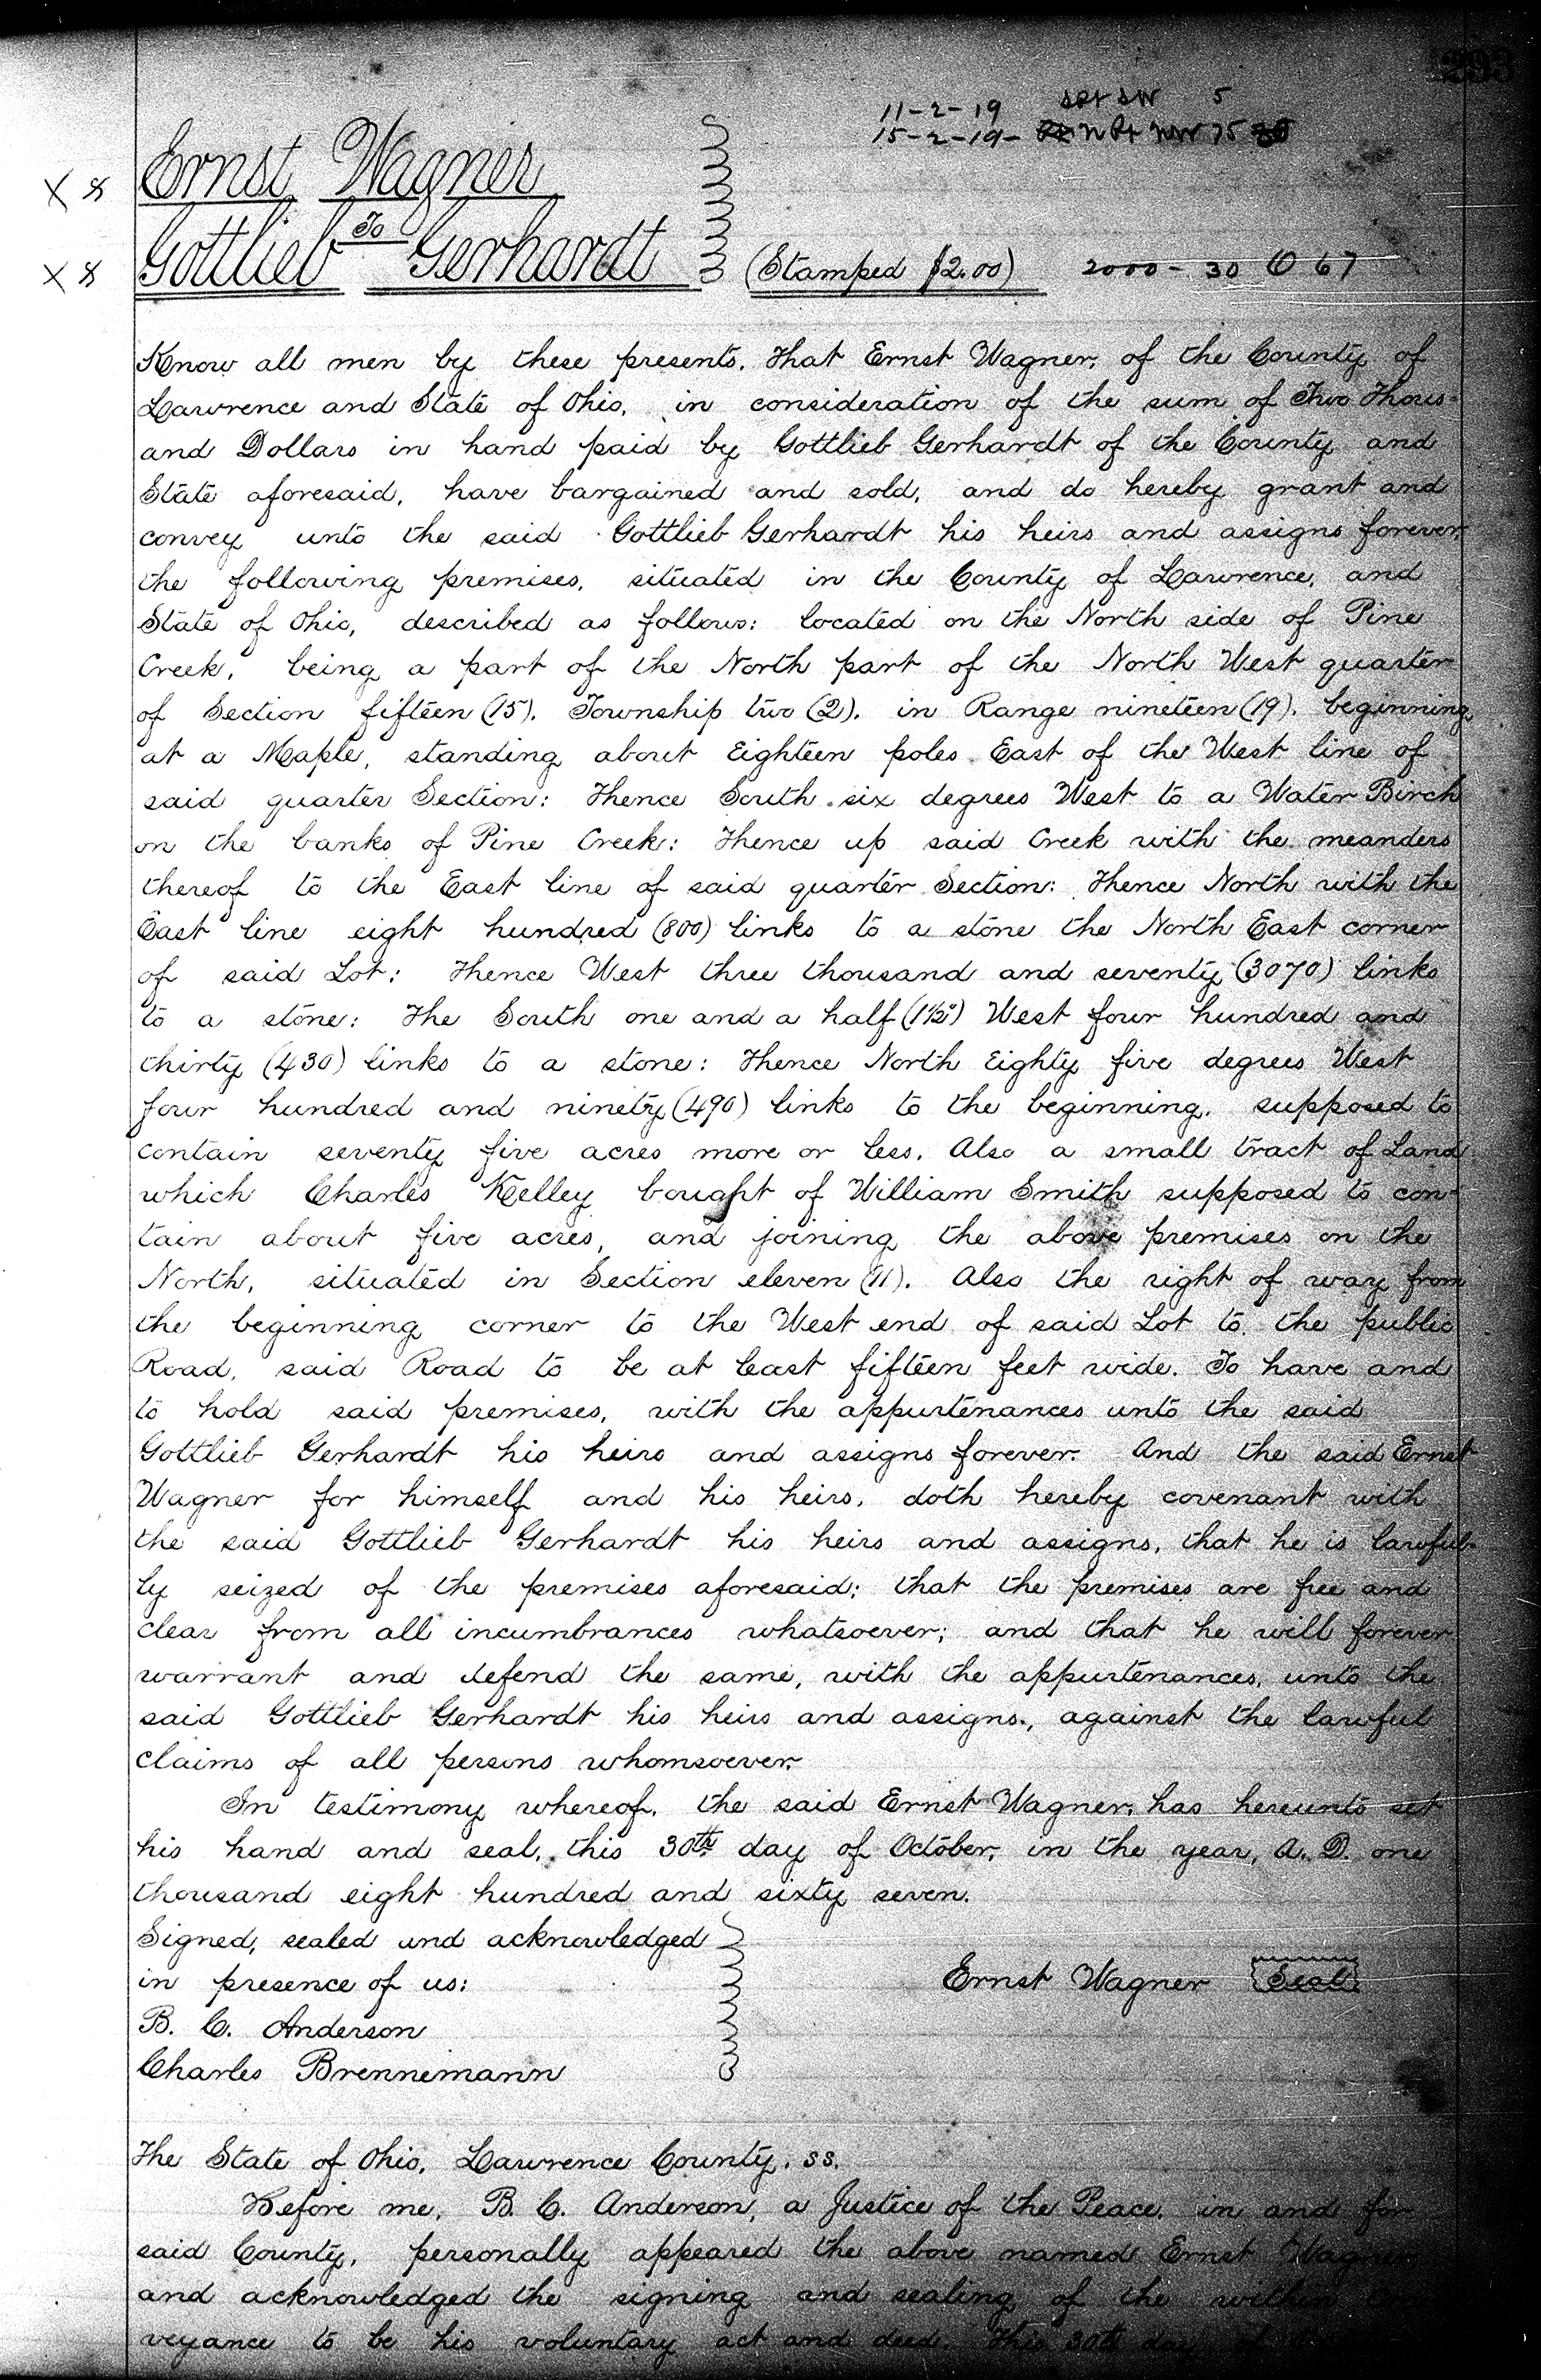 293
11-2-19 SPt SW 5
15-2-19- N Pt NW 75
Ernst Wagner
To
Gottlieb Gerhardt
(Stamped $2.00) 2000 - 30 O 67
Know all men by these presents. That Ernst Wagner, of the County of
Lawrence and State of Ohio, in consideration of the sum of Two Thous-
and Dollars in hand paid by Gottlieb Gerhardt of the County and
State aforesaid, have bargained and sold, and do hereby grant and
convey unto the said Gottlieb Gerhardt his heirs and assigns forever,
the following premises, situated in the County of Lawrence, and
State of Ohio, described as follows: located on the North side of Pine
Creek, being a part of the North part of the North West quarter
of Section fifteen (15), Township two (2), in Range nineteen (19), beginning
at a Maple, standing about Eighteen poles East of the West line of
said quarter Section: Thence South six degrees West to a Water Birch
on the banks of Pine Creek: Thence up said Creek with the meanders
thereof to the East line of said quarter Section: Thence North with the
East line eight hundred (800) links to a stone the North East corner
of said Lot: Thence West three thousand and seventy (3070) links
to a stone: The South one and a half (1½°) West four hundred and
thirty (430) links to a stone: Thence North Eighty five degrees West
four hundred and ninety (490) links to the beginning, supposed to
contain seventy five acres more or less. Also a small tract of Land
which Charles Kelley bought of William Smith supposed to con-
tain about five acres, and joining the above premises on the
North, situated in Section eleven (11). Also the right of way from
the beginning corner to the West end of said Lot to the public
Road, said Road to be at least fifteen feet wide. To have and
to hold said premises, with the appurtenances unto the said
Gottlieb Gerhardt his heirs and assigns forever. And the said Ernst
Wagner for himself and his heirs, doth hereby covenant with
the said Gottlieb Gerhardt his heirs and assigns, that he is lawful-
ly seized of the premises aforesaid; that the premises are free and
clear from all incumbrances whatsoever; and that he will forever
warrant and defend the same, with the appurtenances, unto the
said Gottlieb Gerhardt his heirs and assigns, against the lawful
claims of all persons whomsoever.
In testimony whereof, the said Ernst Wagner, has hereunto set
his hand and seal, this 30th day of October, in the year, A. D. one
thousand eight hundred and sixty seven.
Signed, sealed und acknowledged
in presence of us:
Ernst Wagner Seal
B. C. Anderson
Charles Brennemann
The State of Ohio, Lawrence County, ss.
Before me, B. C. Anderson, a Justice of the Peace, in and for
said County, personally appeared the above named Ernst Wagner
and acknowledged the signing and sealing of the within
veyance to be his voluntary act and deed. This 30th day of